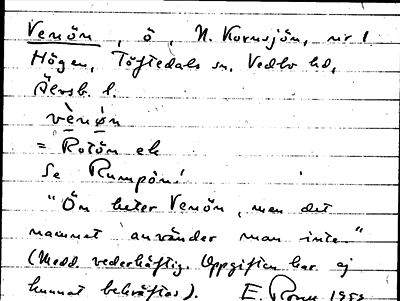 Venön, ö, N. Kornsjön, nr 1
Högen, Töftedals sn, Vedbo hd,
Älvsb. l.
vènøn
= Rotön ek
Se Rumpön!
"Ön heter Venön, men det
namnet använder man inte."
(Medd. vederhäftig. Uppgiften har ej
kunnat bekräftas). E.